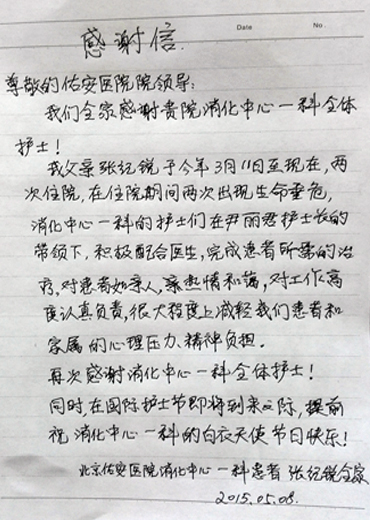 感谢信.
Date
No.
尊敬的佑安医院院领导:
我们全家感谢贵院消化中心一科全体
护士!
我父亲张纪锐于今年3月11日至现在,两
次住院,在住院期间两次出现生命垂危,
消化中心一科的护士们在尹丽君护士长的
带领下,积极配合医生,完成患者所需的治
疗,对患者如亲人,亲热情和蔼,对工作高
度认真负责,很大程度上减轻我们患者和
家属的心理压力、精神负担.
再次感谢消化中心一科全体护士!
同时在国际护士节即将到来之际,提前
祝消化中心一科的白衣天使节日快乐!
北京佑安医院消化中心一科患者 张纪锐全家
2015.05.08.